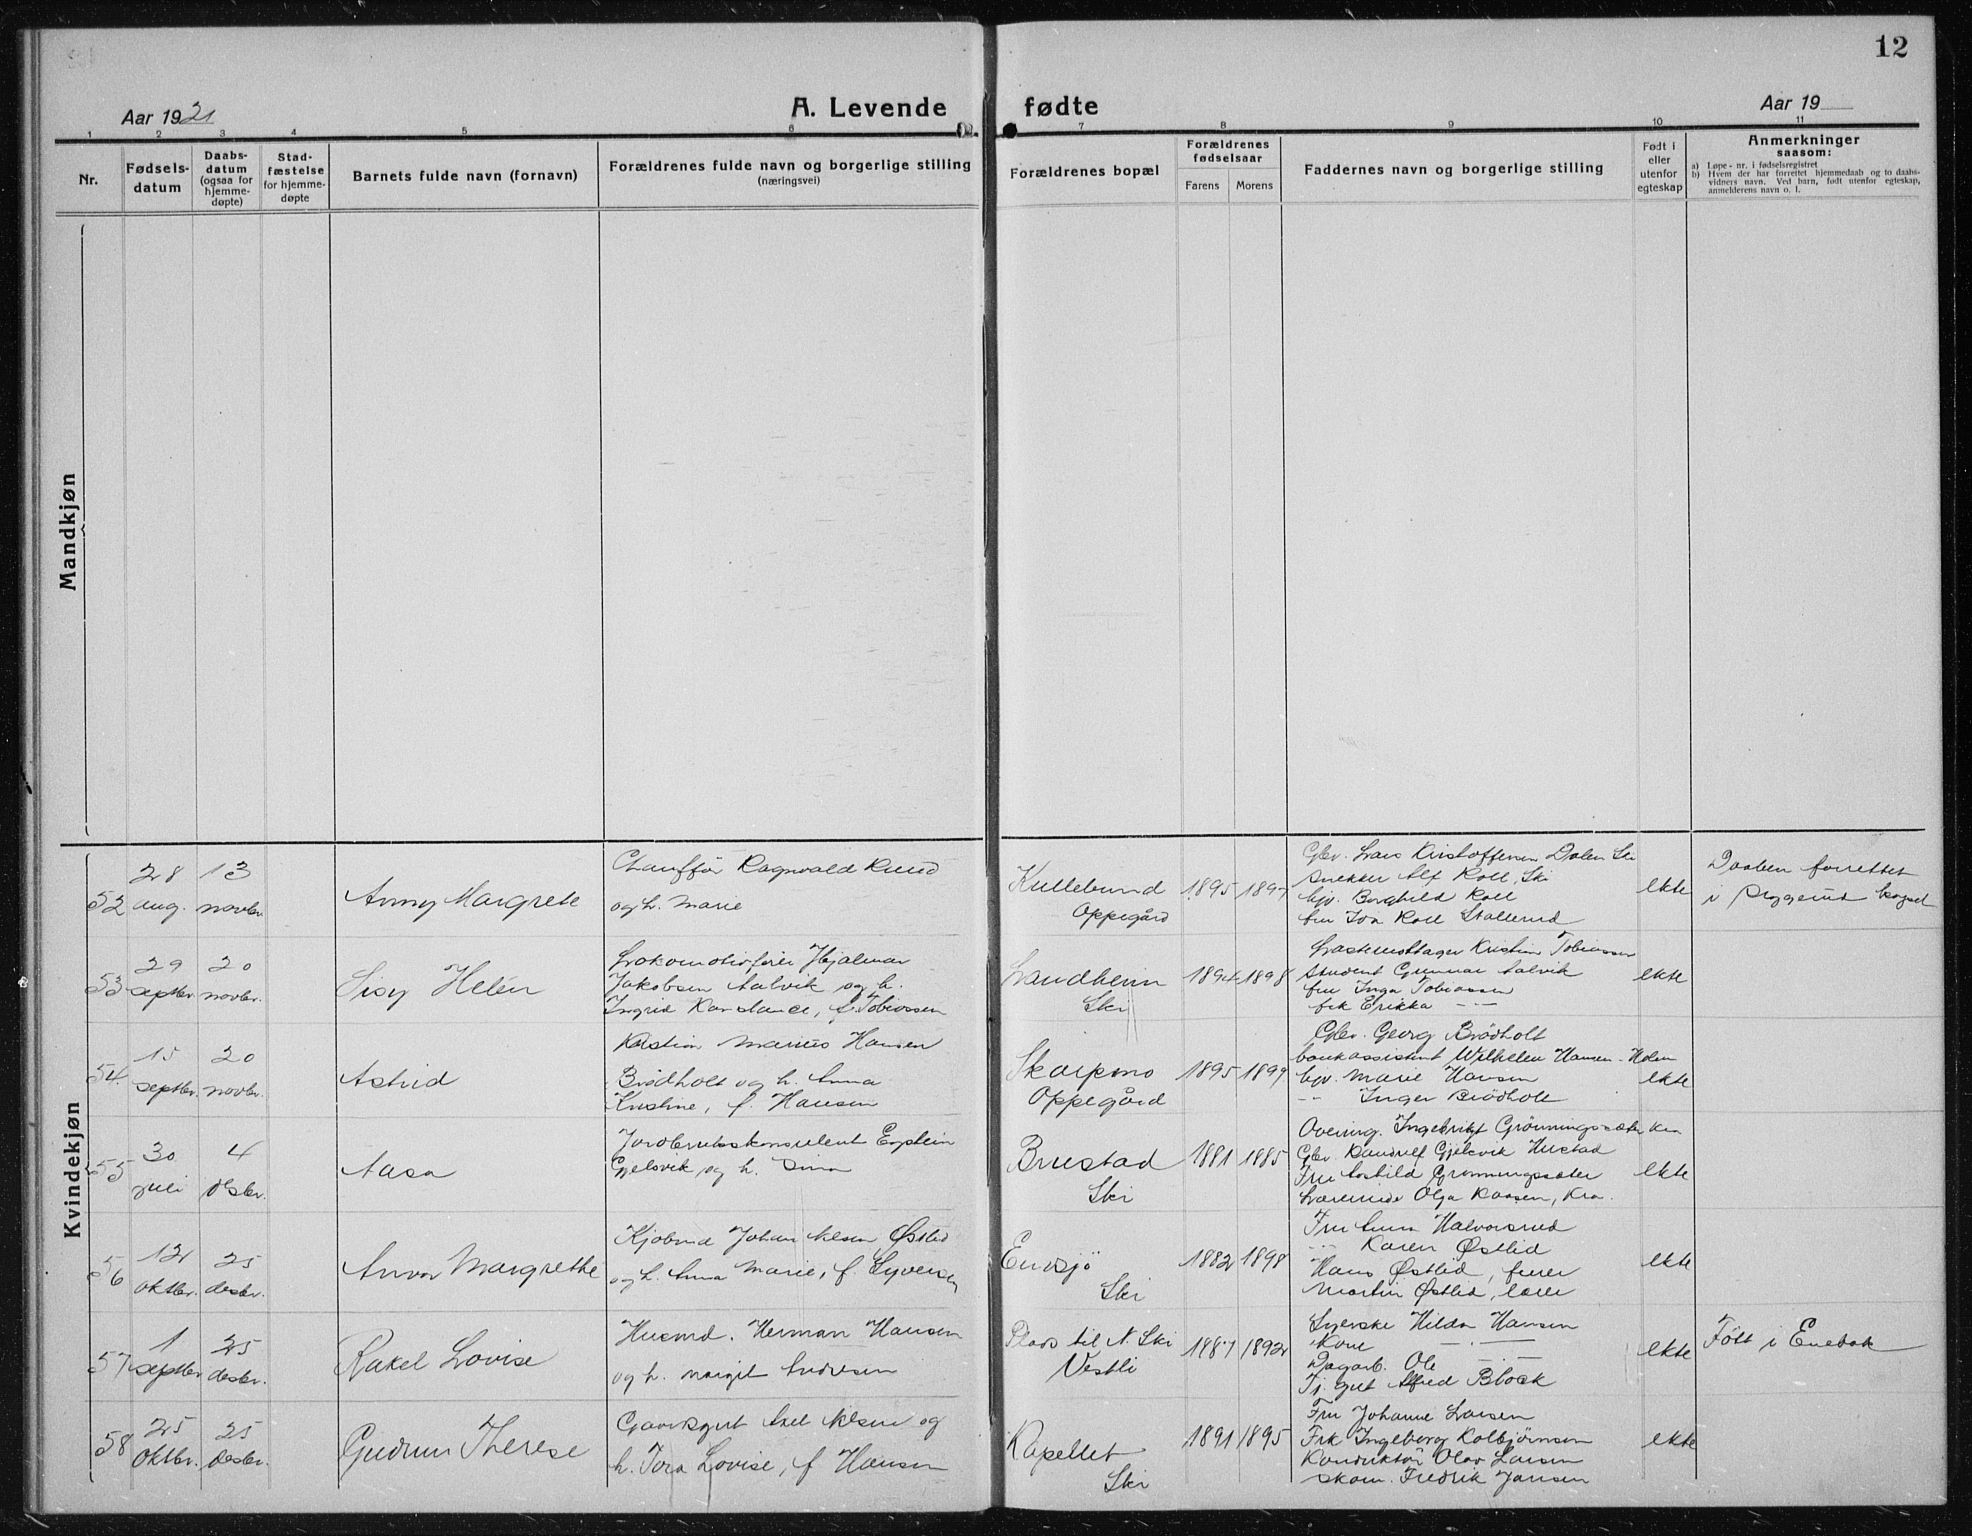 12
Aar 1921
A. Levende fødte
Aar 19
1 2 3 4 5 6 7 8 9 10 11
Nr.
Fødselsdatum
Daabsdatum (ogsaa for hjemmedøpte)
Stadfæstelse for hjemmedøpte
Barnets fulde navn (fornavn)
Forældrenes fulde navn og borgerlige stilling
(næringsvei)
Forældrenes bopæl
Forældrenes fødselsaar
Farens Morens
Faddernes navn og borgerlige stilling
Født i eller utenfor egteskap
Anmerkninger
saasom:
a) Løpe-nr. i fødselsregistret
b) Hvem der har forrettet hjemmedaab og to daabsvidners navn. Ved barn, født utenfor egteskap, anmelderens navn o. l.
Mandkjøn
Kvindekjøn
52
28 aug.
13 novbr.
Anny Margrete
Chauffør Ragnvald Ruud
og h. Marie
Kullebund
Oppegård
1895 1897
Gbr. Lars Kristoffersen Dalen Ski
Snekker Alf Roll, Ski
hjv. Borghild Roll
fru Ida Roll Stallerud
ekte
Daaben forrettet
i Kapel
53
29 septbr.
20 novbr.
Sisy Helén
Lokomotivfører Hjalmar
Jakobsen Aalvik og h.
Ingrid Konstance, f. Tobiassen
Landheim
Ski
1894 1898
Kristian Tobiassen
Student Gunnar Aalvik
fru Inga Tobiassen
frk Erikka - -
ekte
54.
15 septbr.
20 novbr.
Astrid
Kristian Marius Hansen
Brødholt og h. Anna
Kristine, f. Hansen
Skarpsno
Oppegård
1895 1899
Gbr. Georg Brødholt
bankassistent Wilhelm Hansen - Holm
hjv. Marie Hansen
- - Inger Brødholt
ekte
55
30 juli
4 desbr.
Aasa
Jordbrukskonsulent Eystein
Gjelsvik og h. Sina
Brustad
Ski
1881 1885
Overing. Ingebrigt Grønningsæter Kra
Gbr. Gjelsvik Hustad
Fru Aashild Grønningssæter
Lærerinde Olga Kaasen, Kra.
ekte
56
12 oktbr.
25 desbr.
Anna Margrethe
Johan Nilsen Østlid
og h. Anna Marie, f. Syversen
Endsjø
Ski
1882 1898
Fru Anna Halvorsrud
- - Karen Østlid
Hans Østlid, fører
Martin Østlid, lærer
ekte
57
1 septbr.
25 desbr.
Rakel Lovise
Husmd. Herman Hansen
og h. Margit Andersen
Plads til N. Ski
Vestli
1887 1892
Syerske Hilda Hansen
Kone - . -
Dagarb. Ole - . -
Tj. gut Alfred Block
ekte
Født i Enebak
58
25 oktbr.
25 desbr.
Gudrun Therese
Axel Nilsen og
h. Tora Lovise, f. Hansen
Kapellet
Ski
1891 1895
Fru Johanne Larsen
Frk Ingeborg Kolbjørnsen
Konduktør Olav Larsen
Skom. Fredrik Jansen
ekte